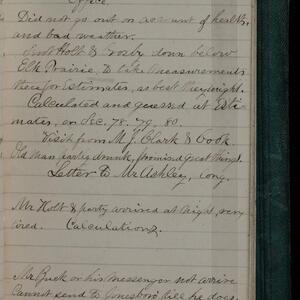 Office.
Did not go out on account of health,
and bad weather.
Sent Holt & Crosby down below
Elk Prairie, to take measurements
there for Estimates, as best they might.
Calculated and guessed at Esti-
mates, on Sec. 78. 79. 80.
Visit from M. J. Clark & Cook.
Old man partly drunk, promised great things.
Letter to Mr Ashley, long.
Mr Holt & party arrived at night, very
tired. Calculations.
Mr Buck or his messenger not arrive
Cannot send to Jonesboro till he does.